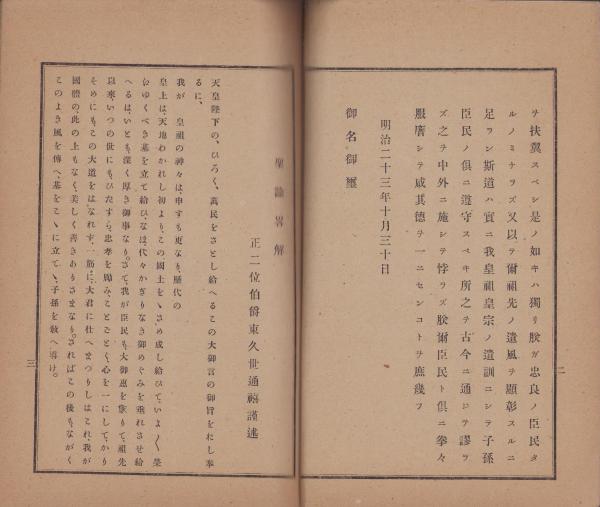 ヲ扶翼スベシ是ノ如キハ獨リ朕ガ忠良ノ臣民タ
ルノミナラズ又以テ爾祖先ノ遺風ヲ顯彰スルニ
足ラン斯道ハ實ニ我皇祖皇宗ノ遺訓ニシテ子孫
臣民ノ俱ニ遵守スベキ所之ヲ古今ニ通ジテ謬ラ
ズ之ヲ中外ニ施シテ悖ラズ朕爾臣民ト俱ニ拳々
服膺シテ咸其德ヲ一ニセンコトヲ庶幾フ
明治二十三年十月三十日
御名御璽
二
聖諭畧解
正二位伯爵東久世通禧謹述
天皇陛下の、ひろく、萬民をさとし給へるこの大御言の御旨をおし奉
るに、
我が 皇祖の神々は、申すも更なり、歷代の
皇上は、天地わかれし初より、この國土をゝさめ成し給ひて、いよ〱榮
ゆくべき基を立て給ひ、なほ、代々かぎりなき御めぐみを垂れさせ給
へるは、いとも、深く厚き御事なり。さて、我が臣民も、大御惠を蒙りて、祖先
以來いつの世にも、ひたすら、忠孝を勵み、ことごとく、心を一にして、かり
そめにも、この大道をはなれず、一筋に、大君に仕へまつりしは、これ、我が
國體の、此の上もなく、美しく善きありさまなり。されば、この後も、ながく
このよき風を傳へ、基をこゝに立てゝ、子孫を敎へ導け。
三